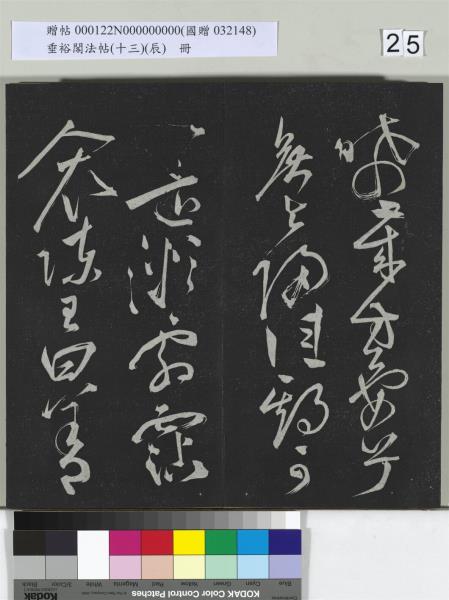 贈帖 000122N000000000(國贈 032148)
垂裕閣法帖(十三)(辰) 冊
25
晞歲方晏兮
無與歸佳期可
以還微霜霑
人衣陳王曰善
Kodak
KODAK Color Control Patches
Blue Cyan Green Yellow Red Magenta White 3/Color Black